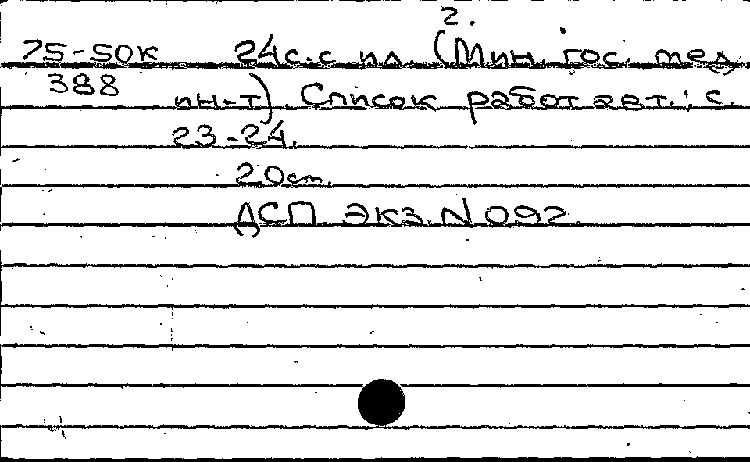 2.
75-50к 24с.с ил. (Мин. гос. мед
388 ин-т). Список работ авт.: с.
23-24.
20см.
ДСП. Экз. N 092.